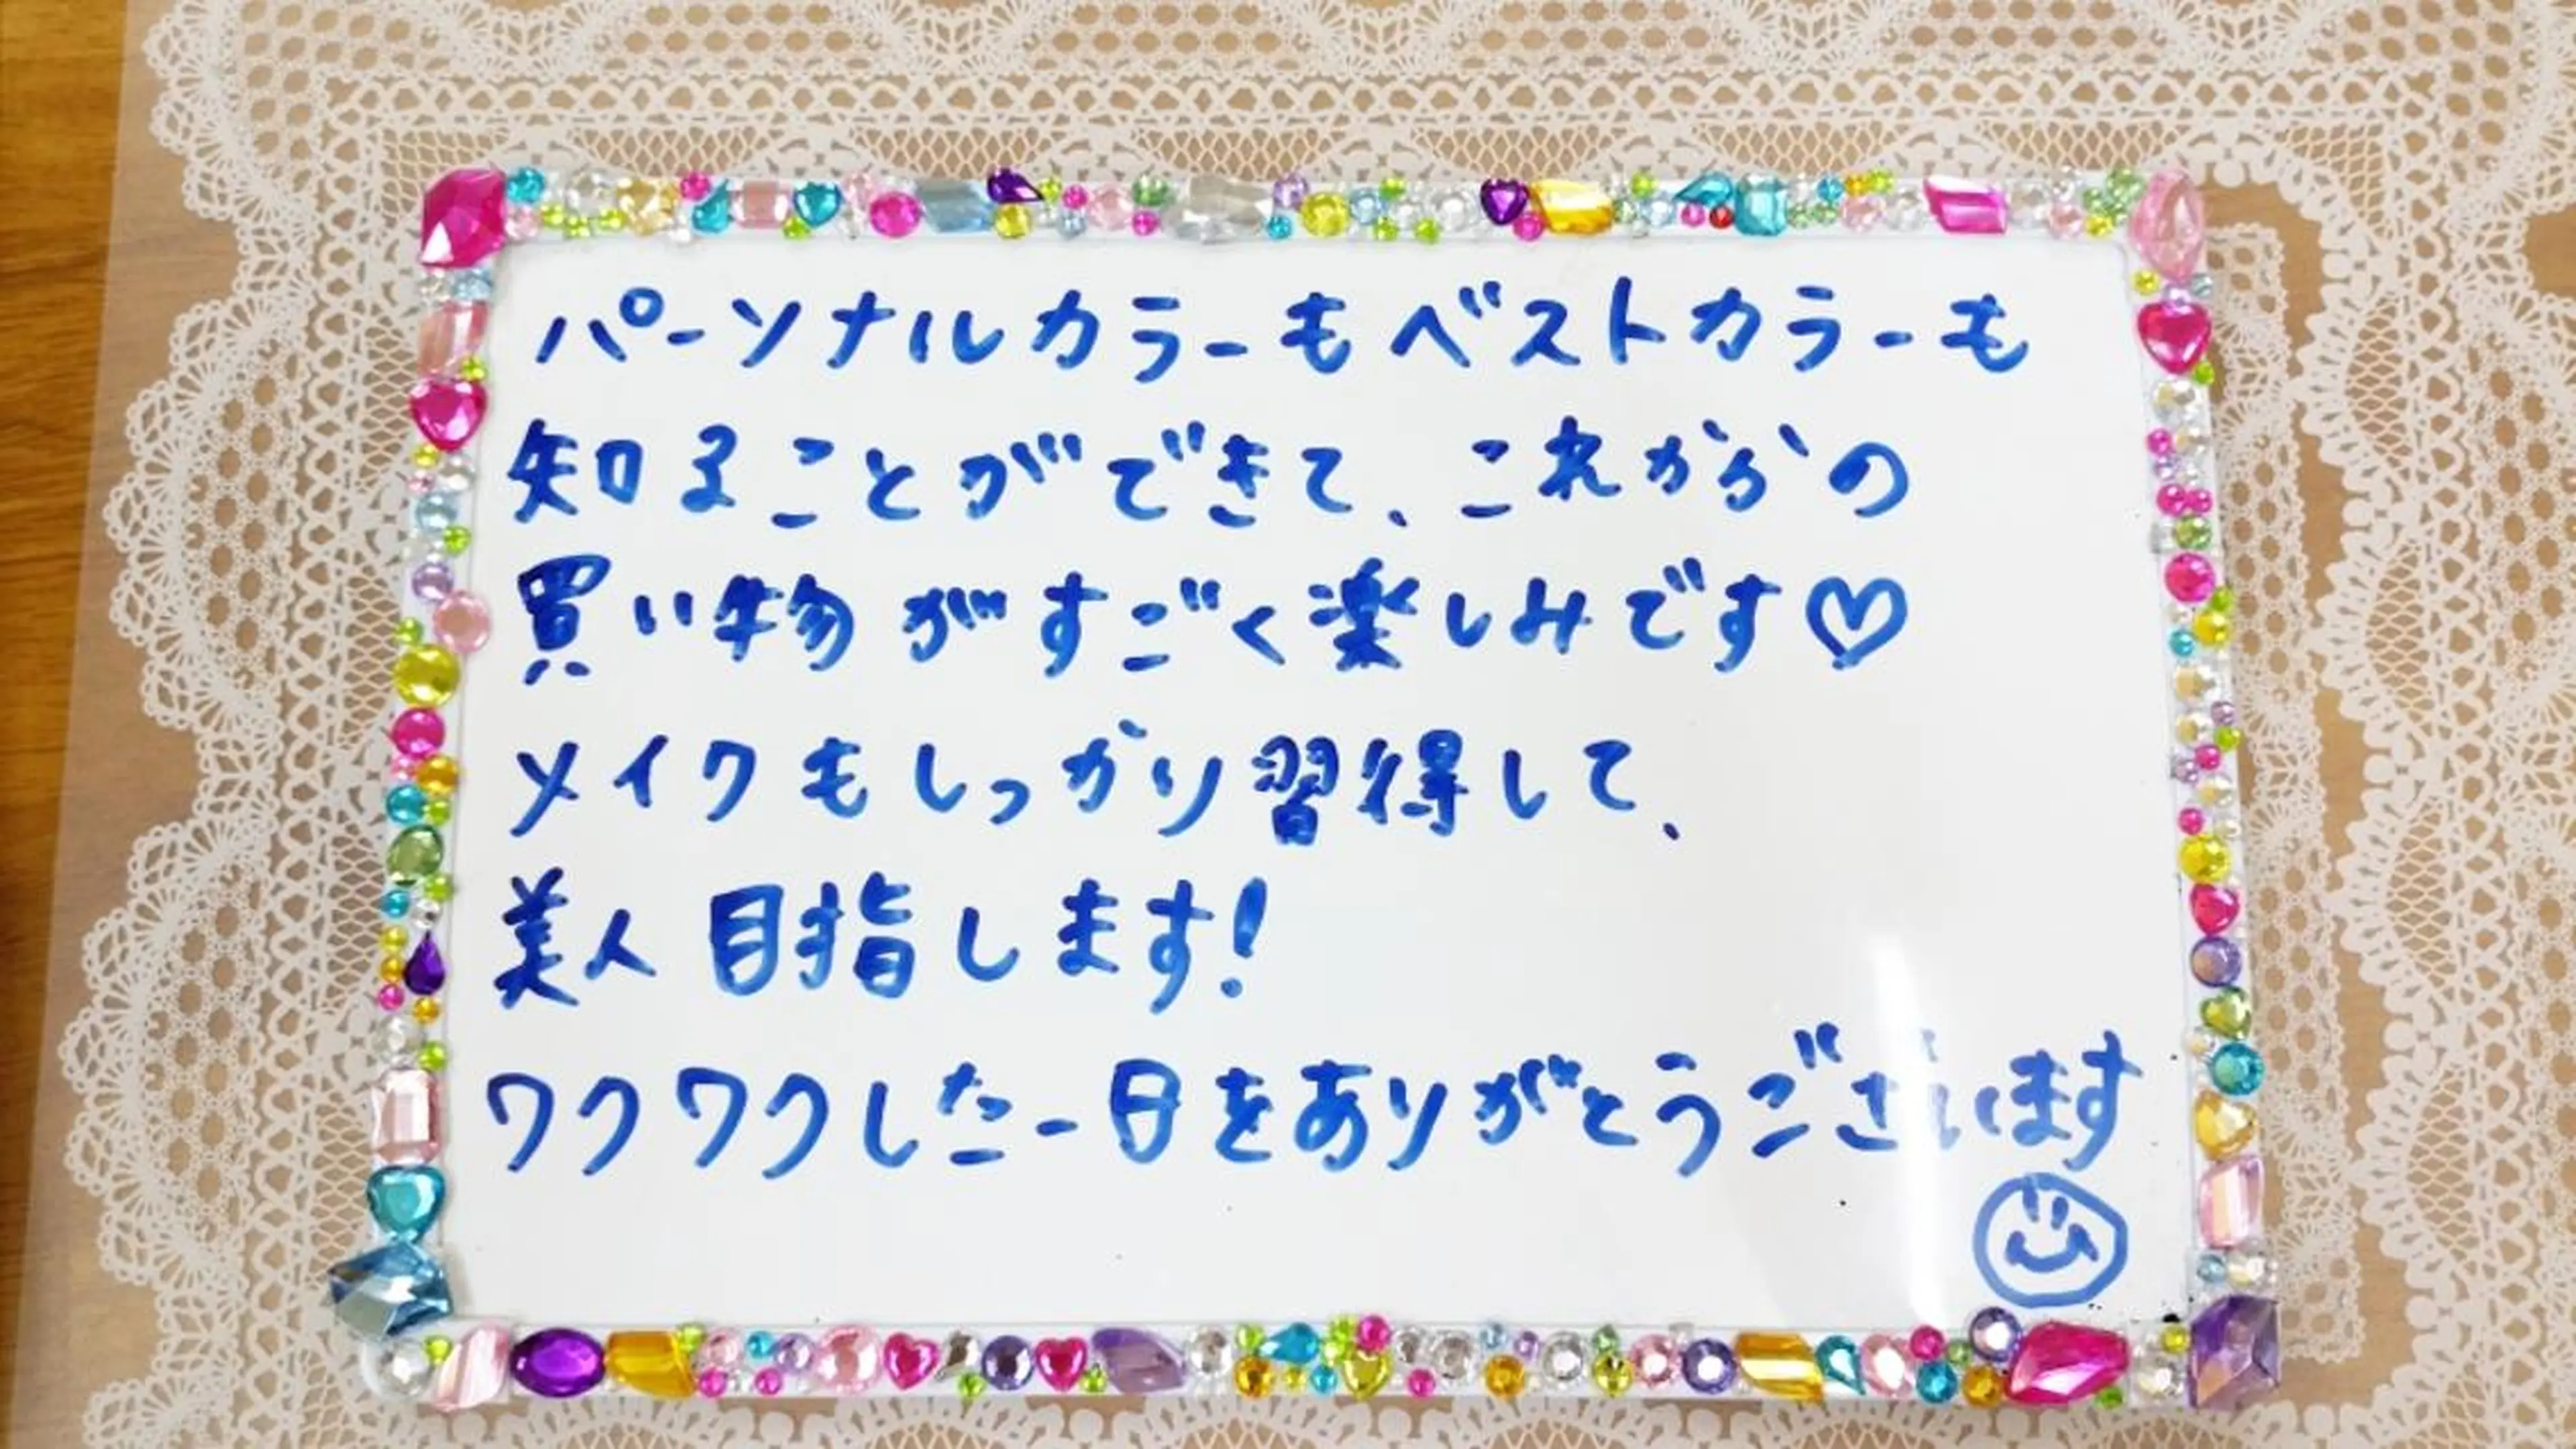 パーソナルカラーもベストカラーも
知ることができて、これからの
買い物がすごく楽しみです♡
メイクもしっかり習得して、
美人目指します!
ワクワクした一日をありがとうございます